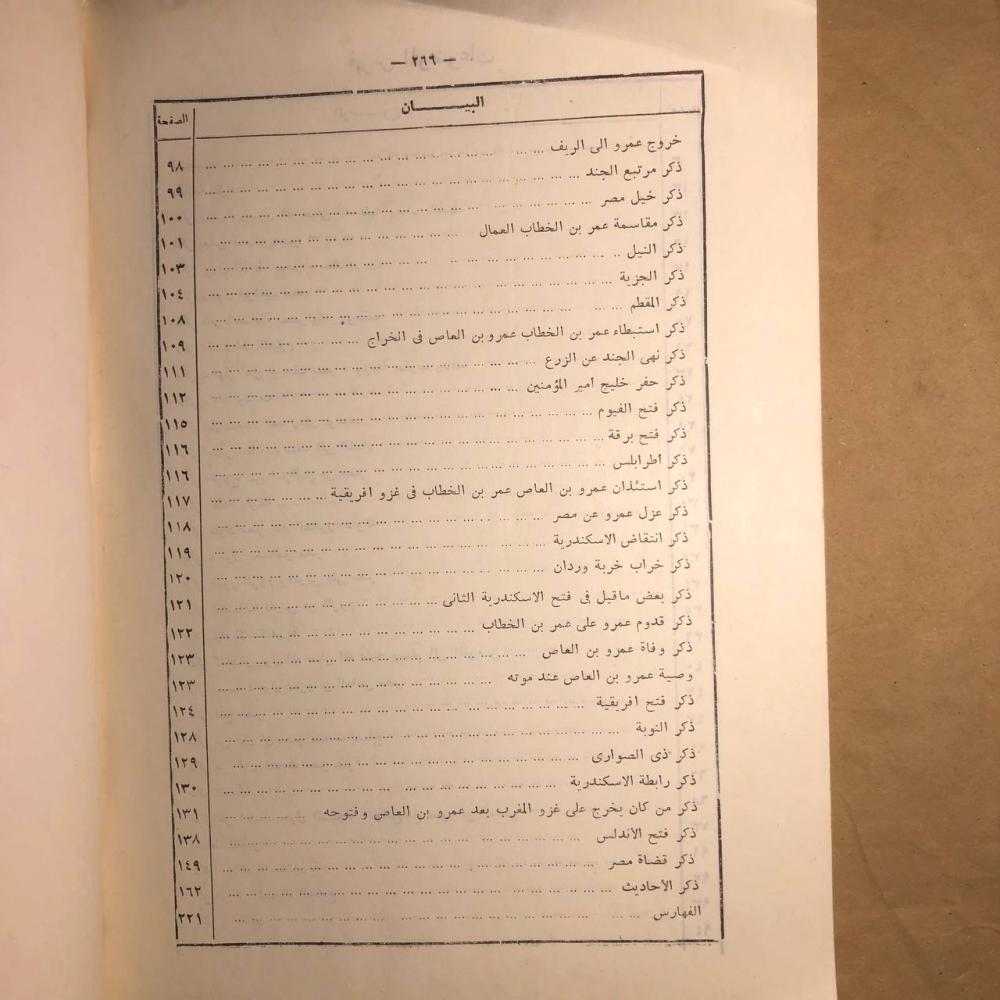 — ٢٦٩ —
البيـــــــان الصفحة
خروج عمرو الى الريف ... ٩٨
ذكر مرتبع الجند ... ٩٩
ذكر خيل مصر ... ١٠٠
ذكر مقاسمة عمر بن الخطاب العمال ... ١٠١
ذكر النيل ... ١٠٣
ذكر الجزية ... ١٠٤
ذكر المقطم ... ١٠٨
ذكر استبطاء عمر بن الخطاب عمرو بن العاص فى الخراج ... ١٠٩
ذكر نهى الجند عن الزرع ... ١١١
ذكر حفر خليج امير المؤمنين ... ١١٢
ذكر فتح الفيوم ... ١١٥
ذكر فتح برقة ... ١١٦
ذكر اطرابلس ... ١١٦
ذكر استئذان عمرو بن العاص عمر بن الخطاب فى غزو افريقية ... ١١٧
ذكر عزل عمرو عن مصر ... ١١٨
ذكر انتقاض الاسكندرية ... ١١٩
ذكر خراب خربة وردان ... ١٢٠
ذكر بعض ماقيل فى فتح الاسكندرية الثانى ... ١٢١
ذكر قدوم عمرو على عمر بن الخطاب ... ١٢٢
ذكر وفاة عمرو بن العاص ... ١٢٣
وصية عمرو بن العاص عند موته ... ١٢٣
ذكر فتح افريقية ... ١٢٤
ذكر النوبة ... ١٢٨
ذكر ذى الصوارى ... ١٢٩
ذكر رابطة الاسكندرية ... ١٣٠
ذكر من كان يخرج على غزو المغرب بعد عمرو بن العاص وفتوحه ... ١٣١
ذكر فتح الأندلس ... ١٣٨
ذكر قضاة مصر ... ١٤٩
ذكر الأحاديث ... ١٦٢
الفهارس ... ٢٢١